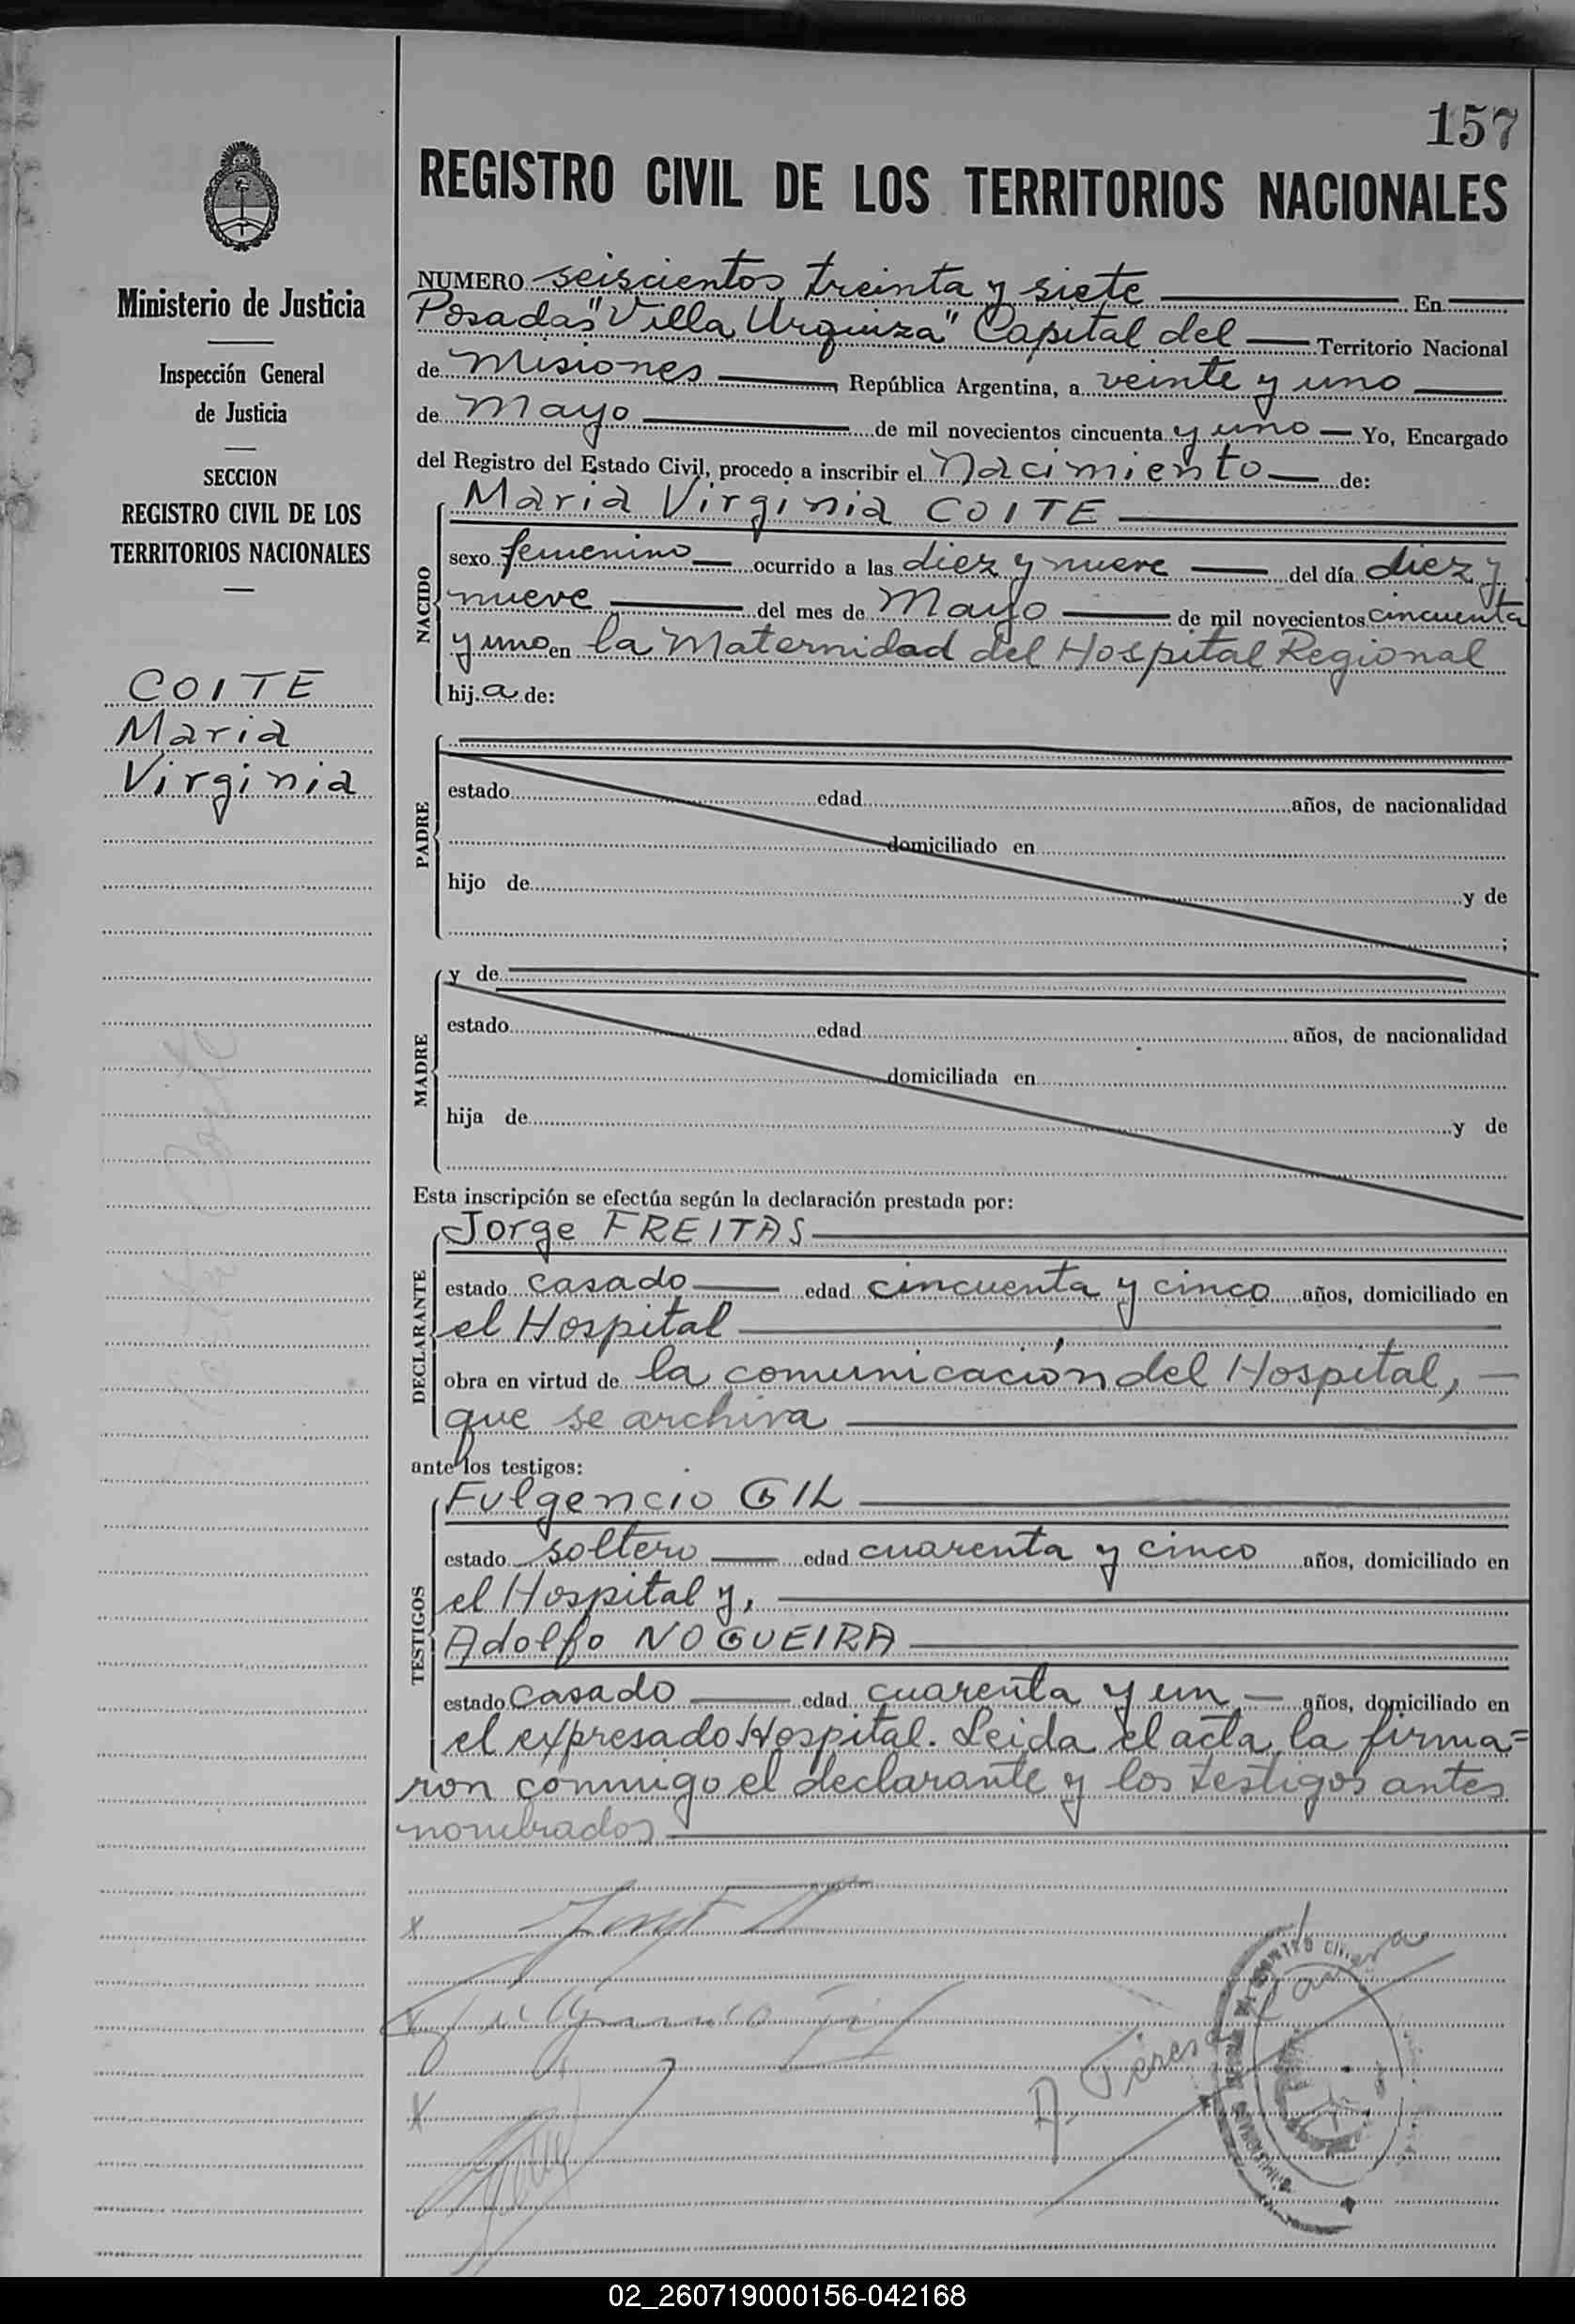 157
REGISTRO CIVIL DE LOS TERRITORIOS NACIONALES
Ministerio de Justicia
Inspección General
de Justicia
SECCION
REGISTRO CIVIL DE LOS
TERRITORIOS NACIONALES
COITE
Maria
Virginia
NUMERO seiscientos treinta y siete En
Posadas "Villa Urquiza" Capital del Territorio Nacional
de Misiones República Argentina, a veinte y uno
de Mayo de mil novecientos cincuenta y uno Yo, Encargado
del Registro del Estado Civil, procedo a inscribir el Nacimiento de:
NACIDO
Maria Virginia COITE
sexo femenino ocurrido a las diez y nueve del día diez y
nueve del mes de Mayo de mil novecientos cincuenta
y uno en la Maternidad del Hospital Regional
hij a de:
PADRE
estado edad años, de nacionalidad
domiciliado en
hijo de y de
;
MADRE
y de
estado edad años, de nacionalidad
domiciliada en
hija de y de
Esta inscripción se efectúa según la declaración prestada por:
DECLARANTE
Jorge FREITAS
estado casado edad cincuenta y cinco años, domiciliado en
el Hospital
obra en virtud de la comunicación del Hospital,
que se archiva
ante los testigos:
TESTIGOS
Fulgencio GIL
estado soltero edad cuarenta y cinco años, domiciliado en
el Hospital y,
Adolfo NOGUEIRA
estado casado edad cuarenta y un años, domiciliado en
el expresado Hospital. Leida el acta, la firma=
ron conmigo el declarante y los testigos antes
nombrados
x
x
x
02_260719000156-042168